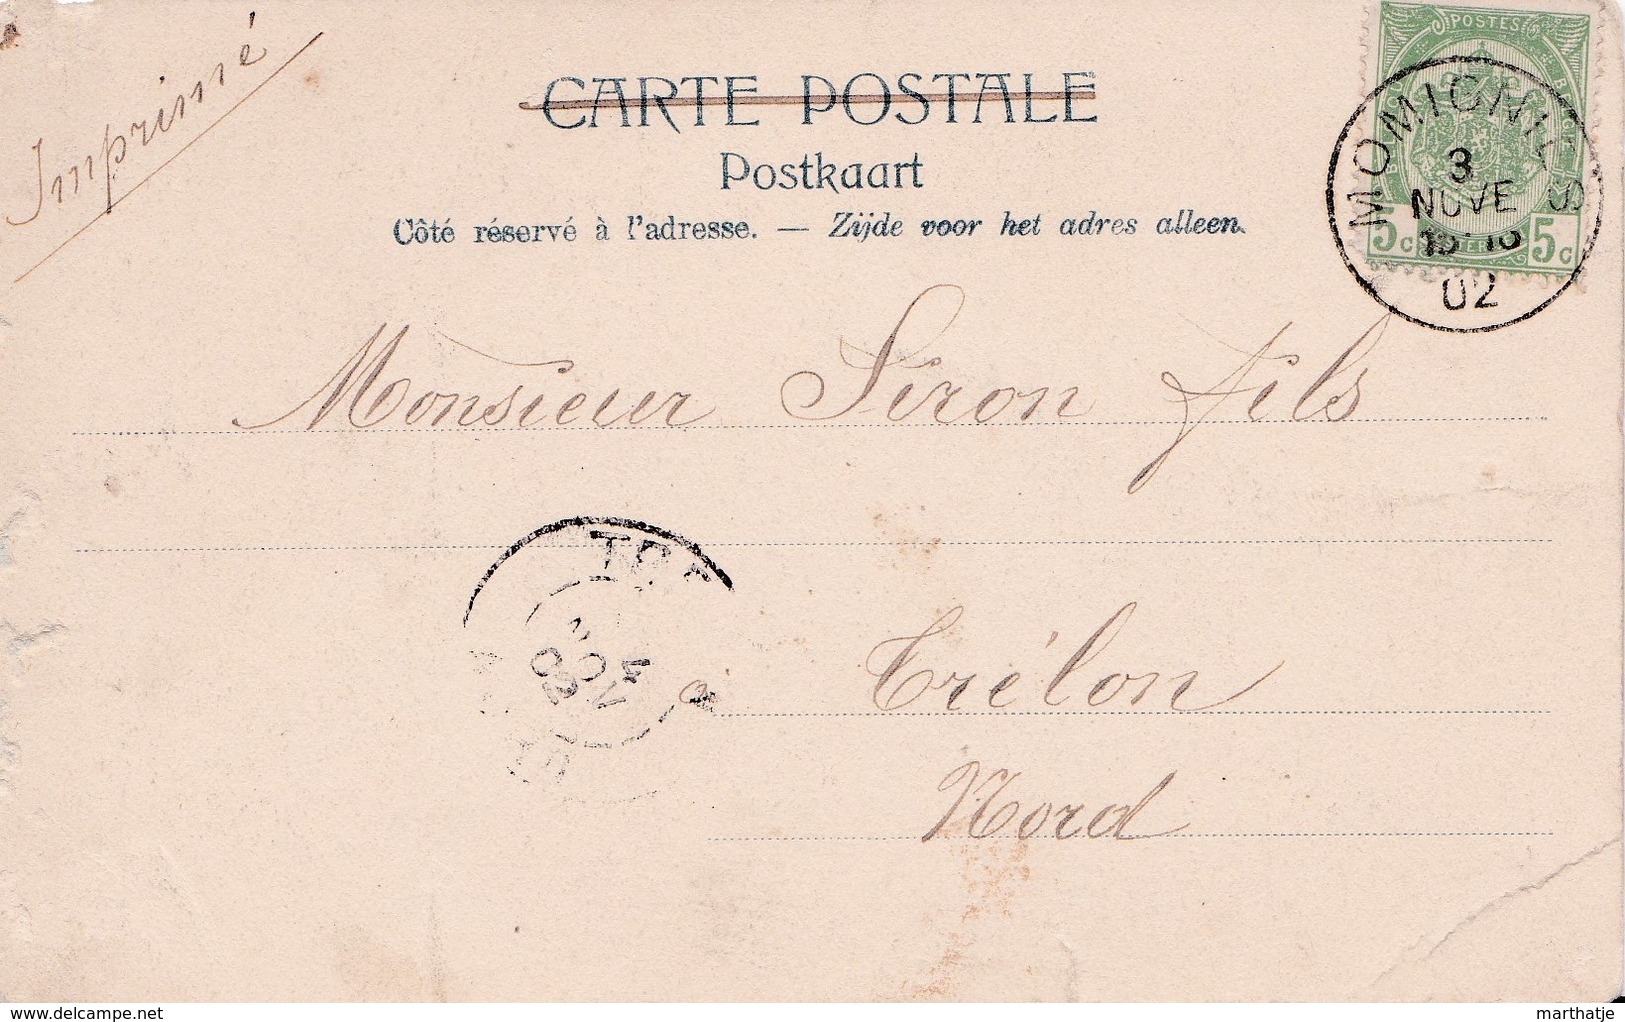 Imprimé
CARTE POSTALE
Postkaart
Côté réservé à l'adresse. — Zijde voor het adres alleen.
POSTES
5c 5c
MOMIGNIES
3
NOVE
02
Monsieur Siron fils
à Trélon
Nord
4
NOV
02
delcampe.net
marthatje